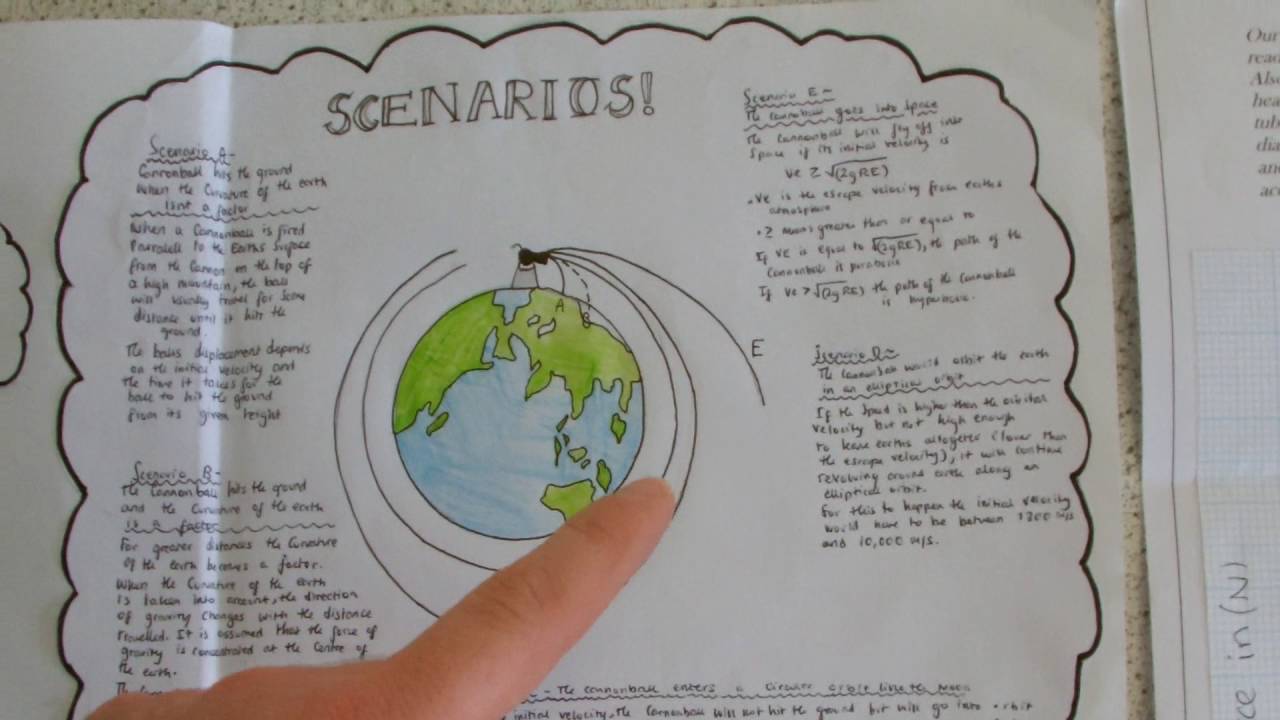 SCENARIOS!
Scenario A-
Cannonball hits the ground
when the Curvature of the earth
Isnt a factor
When a Cannonball is fired
Parralell to the Earths Surface
from the Cannon on the top of
a high mountain, the ball
will usually travel for some
distance until it hits the
ground.
The balls displacement depends
on the initial velocity and
the time it takes for the
ball to hit the ground
from its given height
Scenario B-
The Cannonball hits the ground
and the Curvature of the earth
is a factor
For greater distances the Curvature
of the earth becomes a factor.
When the Curvature of the earth
is taken into account, the direction
of gravity changes with the distance
travelled. It is assumed that the force of
gravity is concentrated at the Centre of
the earth.
A
B
E
Scenario E-
The Cannonball goes into Space
The Cannonball will fly off into
Space if its initial velocity is
Ve ≥ √(2gRE)
• Ve is the escape velocity from earths
atmosphere
• ≥ means greater than or equal to
If VE is equal to √(2gRE), the path of the
Cannonball is parabolic
If Ve > √(2gRE) the path of the Cannonball
is hyperbolic.
Scenario D-
The Cannonball would orbit the earth
in an elliptical orbit
If the Speed is higher than the orbital
velocity but not high enough
to leave earths altogeter (lower than
the escape velocity), it will continue
revolving around earth along an
elliptical orbit.
For this to happen the initial velocity
would have to be between 7300 m/s
and 10,000 m/s.
- The cannonball enters a Circular orbit like the Moon
initial velocity, the Cannonball will not hit the ground but will go into orbit
Our
read
Also
hea
tub
dia
and
ace
ce in (N)